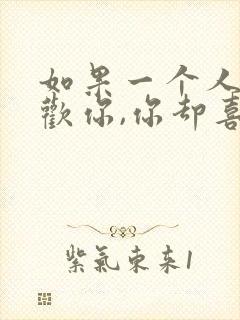 如果一个人
歡你,你却喜
紫氣東来1